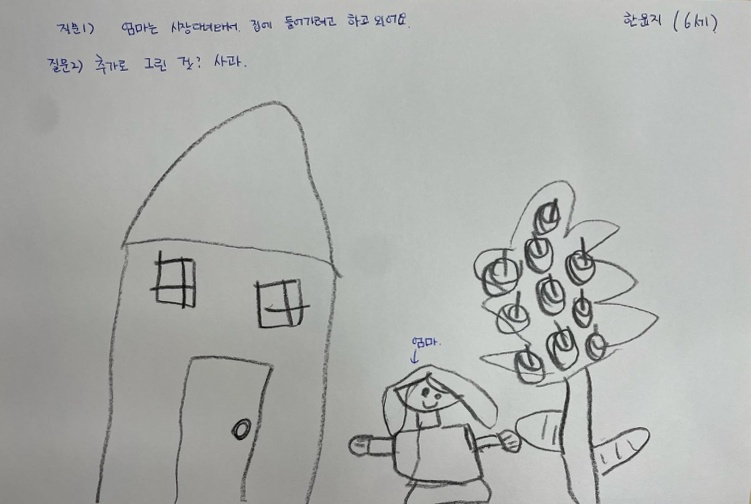 질문1) 엄마는 시장다녀와서, 집에 들어가려고 하고 있어요.
한윤지 (6세)
질문2) 추가로 그린 것? 사과.
엄마.